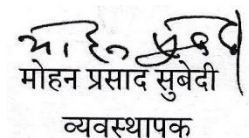 मोहन प्रसाद सुबेदी
व्यवस्थापक